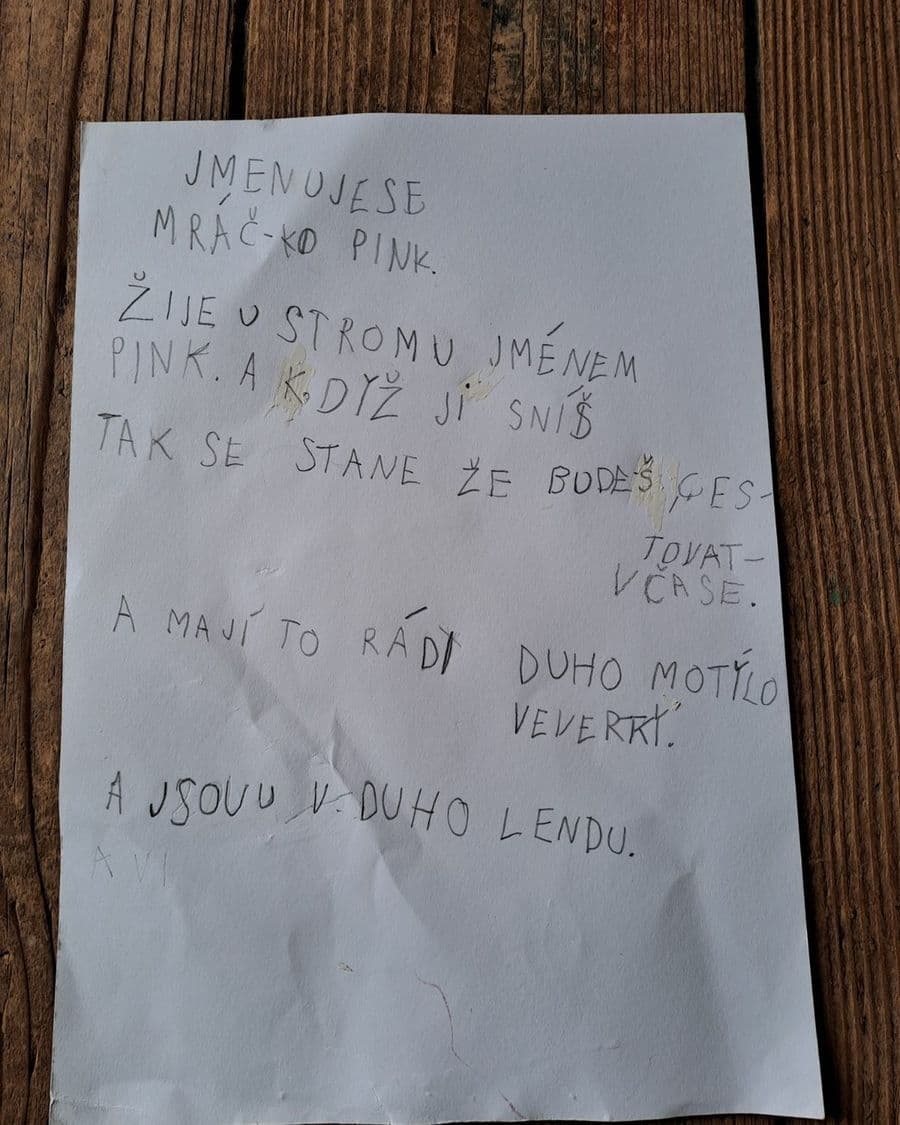 JMENUJESE
MRÁČ-KO PINK.
ŽIJE U STROMU JMÉNEM
PINK. A KDYŽ JÍ SNÍŠ
TAK SE STANE ŽE BUDEŠ CES-
TOVAT-
VČASE.
A MAJÍ TO RÁDY DUHO MOTÝLO
VEVERKY.
A JSOUU V DUHO LENDU.
A VI